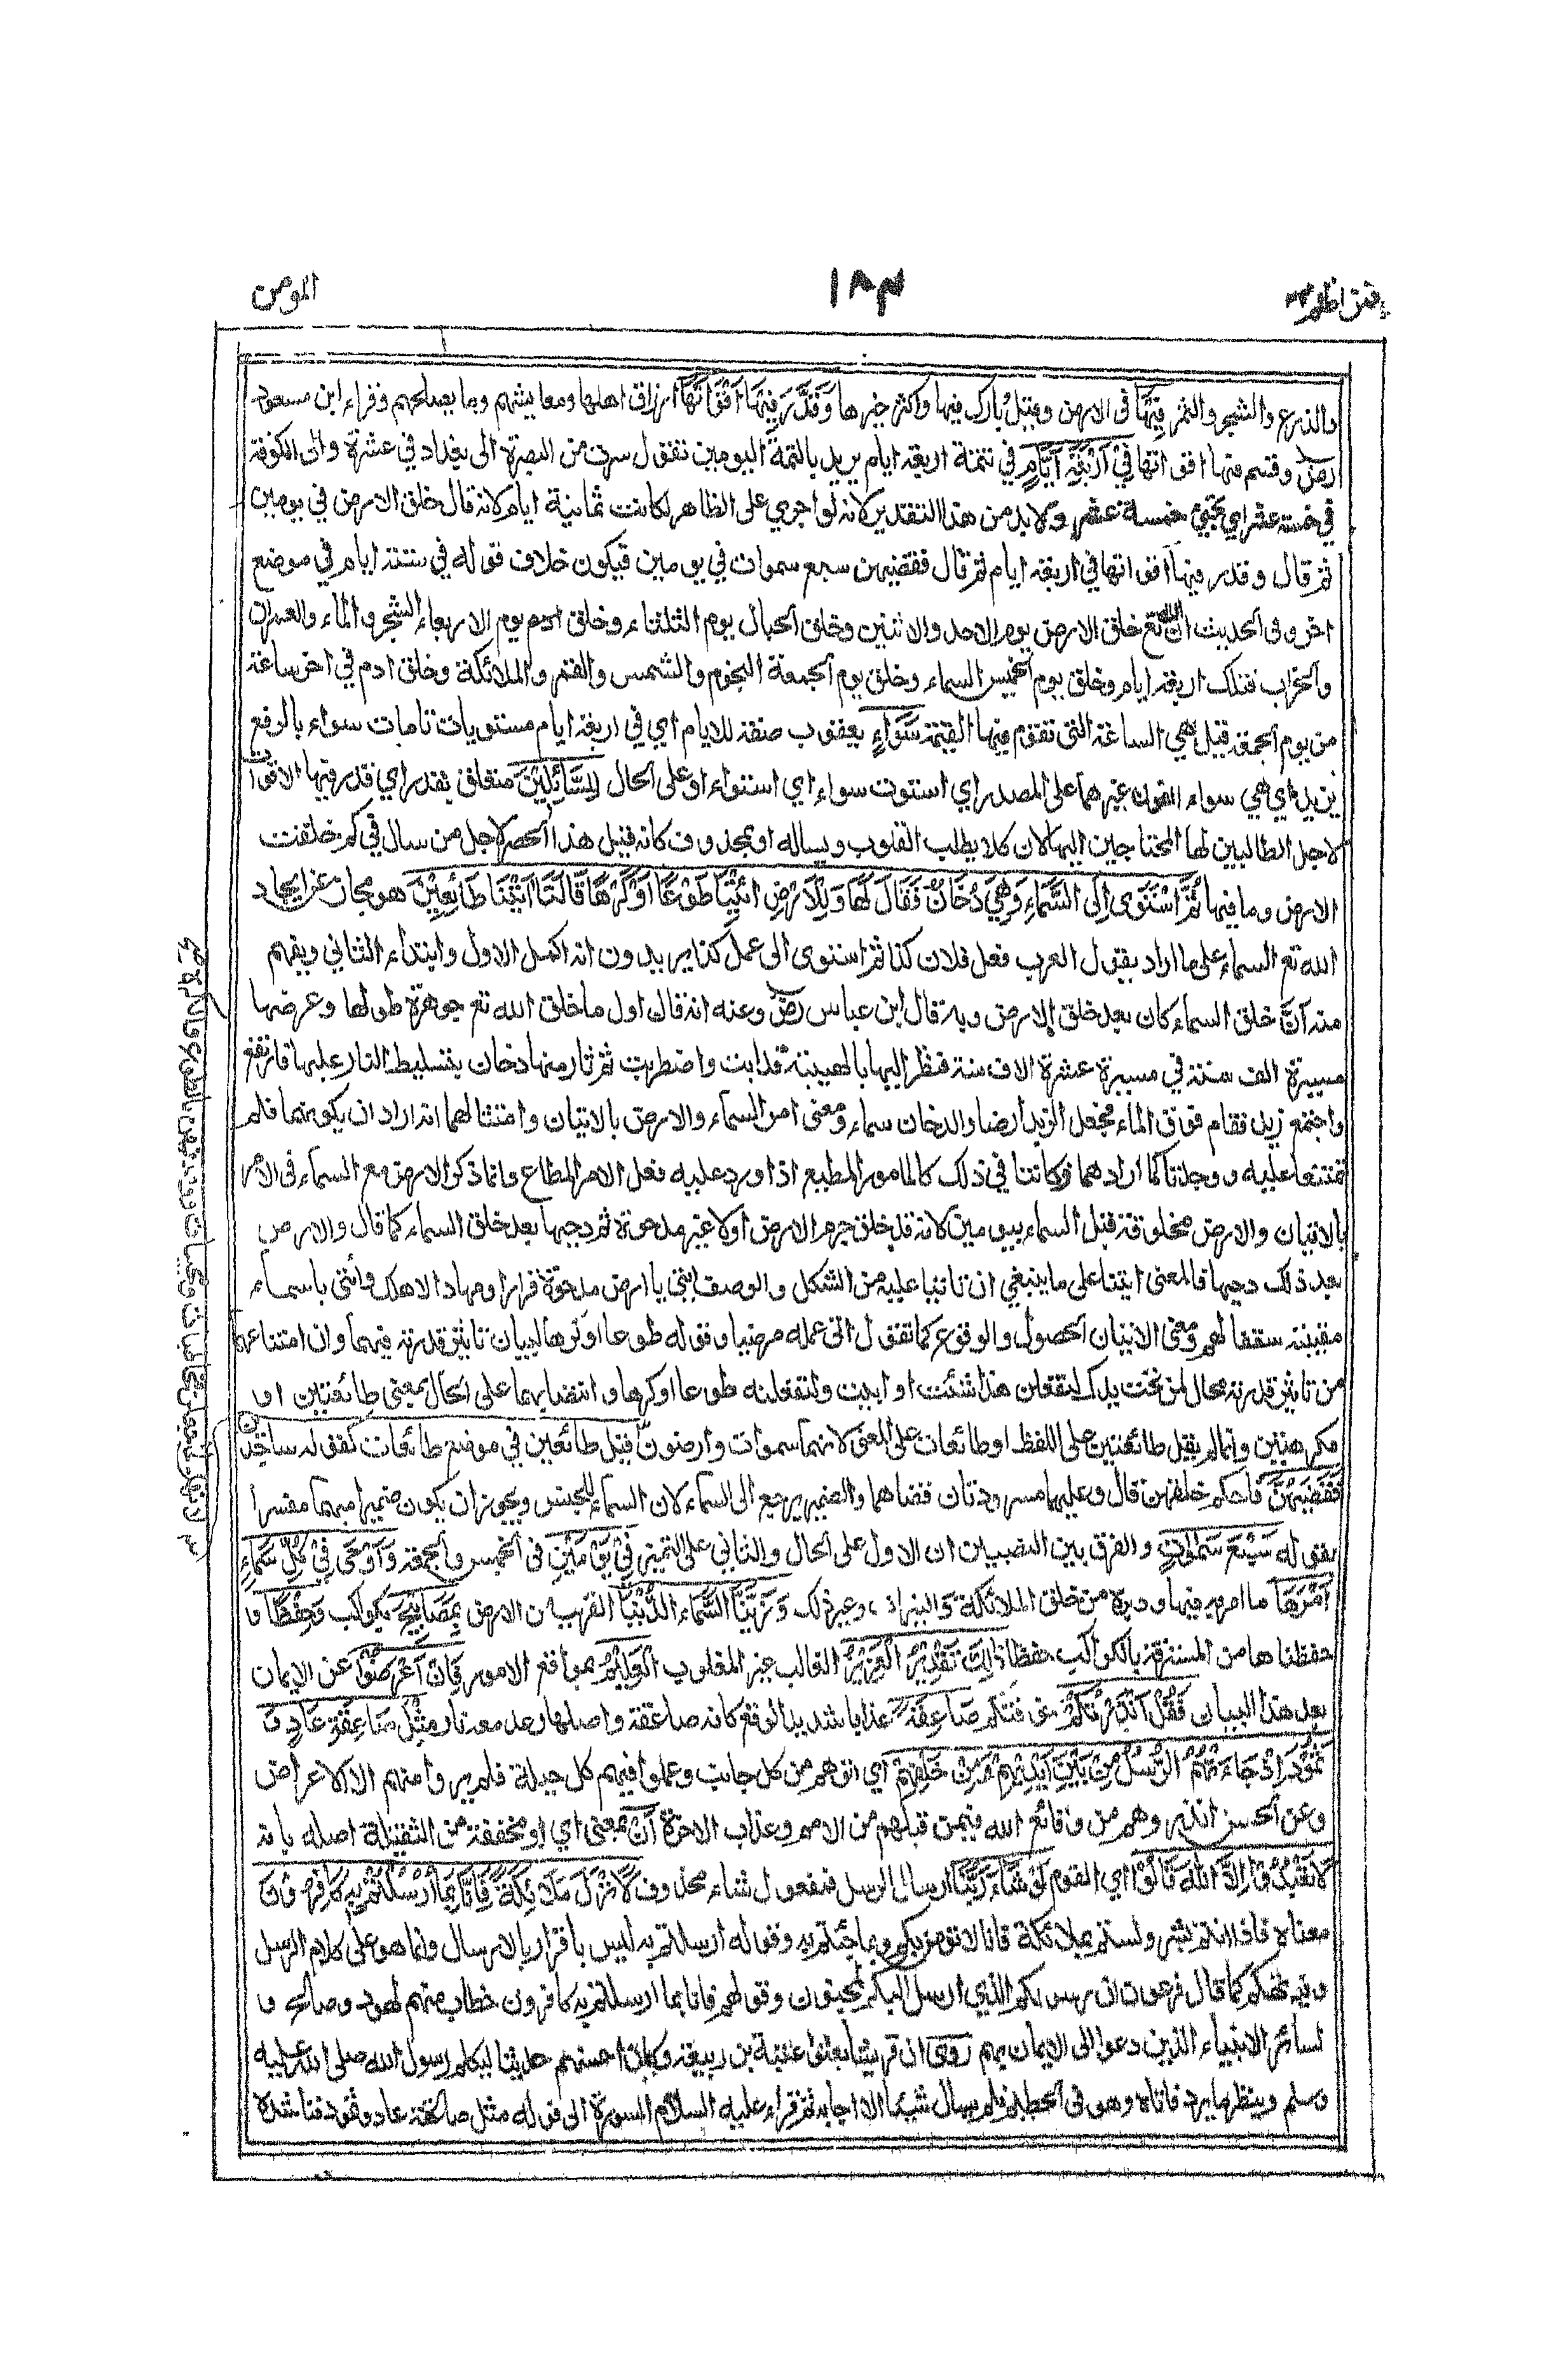 فمن اظلم ٢٤
١٨٣
المومن
والزرع والشجر والثمر فِيْهَا فى الارض وقيل بارك فيها واكثر خيرها وَقَدَّرَ فِيْهَا اَقْوَاتَهَا ارزاق اهلها ومعايشهم وما يصلحهم وقراء ابن مسعود
رض وقسم فيها اقواتها فِيْ اَرْبَعَةِ اَيَّامٍ في تتمة اربعة ايام يريد بالتتمة اليومين تقول سرت من البصرة الى بغداد في عشرة والى الكوفة
في خمسة عشر اي تتمة خمسة عشر ولا بد من هذا التقدير لانه لو اجري على الظاهر لكانت ثمانية ايام لانه قال خلق الارض في يومين
ثم قال وقدر فيها اقواتها في اربعة ايام ثم قال فقضيهن سبع سموات في يومين فيكون خلاف قوله في ستة ايام في موضع
اخر وفى الحديث ان الله تع خلق الارض يوم الاحد والاثنين وخلق الجبال يوم الثلثاء وخلق يوم الاربعاء الشجر والماء والعمران
والخراب فتلك اربعة ايام وخلق يوم الخميس السماء وخلق يوم الجمعة النجوم والشمس والقمر والملائكة وخلق ادم في اخر ساعة
من يوم الجمعة قيل هي الساعة التى تقوم فيها القيمة سَوَاءٍ يعقوب صفة للايام اي في اربعة ايام مستويات تامات سواء بالرفع
يزيد اي هي سواء غيرهما على المصدر اي استوت سواء اي استواء او على الحال لِلسَّائِلِيْنَ متعلق بقدر اي قدر فيها الاقوات
لاجل الطالبين لها المحتاجين اليها لان كلا يطلب القوت ويساله او بمحذوف كانه قيل هذا الحصر لاجل من سال في كم خلقت
الارض وما فيها ثُمَّ اسْتَوٰى اِلَى السَّمَاءِ وَهِيَ دُخَانٌ فَقَالَ لَهَا وَلِلْاَرْضِ ائْتِيَا طَوْعًا اَوْ كَرْهًا قَالَتَا اَتَيْنَا طَائِعِيْنَ هو مجاز عن ايجاد
الله تع السماء على ما اراد يقول العرب فعل فلان كذا ثم استوى الى عمل كذا يريدون انه اكمل الاول وابتداء الثاني ويفهم
منه ان خلق السماء كان بعد خلق الارض وبه قال ابن عباس رض وعنه انه قال اول ما خلق الله تع جوهرة طولها وعرضها
مسيرة الف سنة في مسيرة عشرة الاف سنة فنظر اليها بالهيبة فذابت واضطربت ثم ثار منها دخان بتسليط النار عليها فارتفع
واجتمع زبد فقام فوق الماء فجعل الزبد ارضا والدخان سماء ومعنى امر السماء والارض بالاتيان وامتثالهما انه اراد ان يكونهما فلم
تمتنعا عليه ووجدتا كما ارادهما وكانتا في ذلك كالمامور المطيع اذا ورد عليه فعل الامر المطاع وانما ذكر الارض مع السماء فى الامر
بالاتيان والارض مخلوقة قبل السماء بيومين لانه قد خلق جرم الارض اولا غير مدحوة ثم دحيها بعد خلق السماء كما قال والارض
بعد ذلك دحيها فالمعنى ائتيا على ما ينبغي ان تاتيا عليه من الشكل والوصف ائتى يا ارض مدحوة قرارا ومهادا لاهلك وائتى يا سماء
مقببة سقفا لهم ومعنى الاتيان الحصول والوقوع كما تقول اتى عمله مرضيا وقوله طوعا او كرها لبيان تاثير قدرته فيهما وان امتناعهما
من تاثير قدرته محال لمن تحت يدك لتفعلن هذا شئت او ابيت ولتفعلنه طوعا او كرها وانتصابهما على الحال بمعنى طائعتين او
مكرهتين وانما لم يقل طائعتين على اللفظ او طائعات على المعنى لانهما سموات وارضون قيل طائعين في موضع طائعات كقوله ساجدين
فَقَضٰيهُنَّ فاحكم خلقهن قال وعليهما مسرودتان قضاهما والضمير يرجع الى السماء لان السماء للجنس ويجوز ان يكون ضميرا مبهما مفسرا
بقوله سَبْعَ سَمٰوَاتٍ والفرق بين النصبين ان الاول على الحال والثاني على التمييز فِيْ يَوْمَيْنِ فى الخميس والجمعة وَاَوْحٰى فِيْ كُلِّ سَمَاءٍ
اَمْرَهَا ما امر به فيها ودبره من خلق الملائكة والنيران وغير ذلك وَزَيَّنَّا السَّمَاءَ الدُّنْيَا القريب من الارض بِمَصَابِيْحَ بكواكب وَحِفْظًا و
حفظناها من المسترقة بالكواكب حفظا ذٰلِكَ تَقْدِيْرُ الْعَزِيْزِ الغالب غير المغلوب الْعَلِيْمِ بمواقع الامور فَاِنْ اَعْرَضُوْا عن الايمان
بعد هذا البيان فَقُلْ اَنْذَرْتُكُمْ خوفتكم صَاعِقَةً عذابا شديد الوقع كانه صاعقة واصلها رعد معه نار مِثْلَ صَاعِقَةِ عَادٍ وَ
ثَمُوْدَ اِذْ جَاءَتْهُمُ الرُّسُلُ مِنْ بَيْنِ اَيْدِيْهِمْ وَمِنْ خَلْفِهِمْ اي اتوهم من كل جانب وعملوا فيهم كل حيلة فلم يروا منهم الا الاعراض
وعن الحسن انذروهم من وقائع الله فيمن قبلهم من الامم وعذاب الاخرة اَنْ بمعنى اي او مخففة من الثقيلة اصله بانه
لَا تَعْبُدُوْا اِلَّا اللّٰهَ قَالُوْا اي القوم لَوْ شَاءَ رَبُّنَا ارسال الرسل فمفعول شاء محذوف لَاَنْزَلَ مَلَائِكَةً فَاِنَّا بِمَا اُرْسِلْتُمْ بِهٖ كَافِرُوْنَ
معناه فاذا انتم بشر ولستم بملائكة فانا لا نؤمن بكم وبما جئتم به وقوله ارسلتم به ليس باقرار بالارسال وانما هو على كلام الرسل
وفيه تهكم كما قال فرعون ان رسولكم الذي ارسل اليكم لمجنون وقولهم فانا بما ارسلتم به كافرون خطاب منهم لهود وصالح و
لسائر الانبياء الذين دعوا الى الايمان بهم روى ان قريشا بعثوا عتبة بن ربيعة وكان احسنهم حديثا ليكلم رسول الله صلى الله عليه
وسلم وينظر ما يريد فاتاه وهو فى الحطيم فلم يسال شيئا الا اجابه ثم قراء عليه السلام السورة الى قوله مثل صاعقة عاد وثمود فناشده